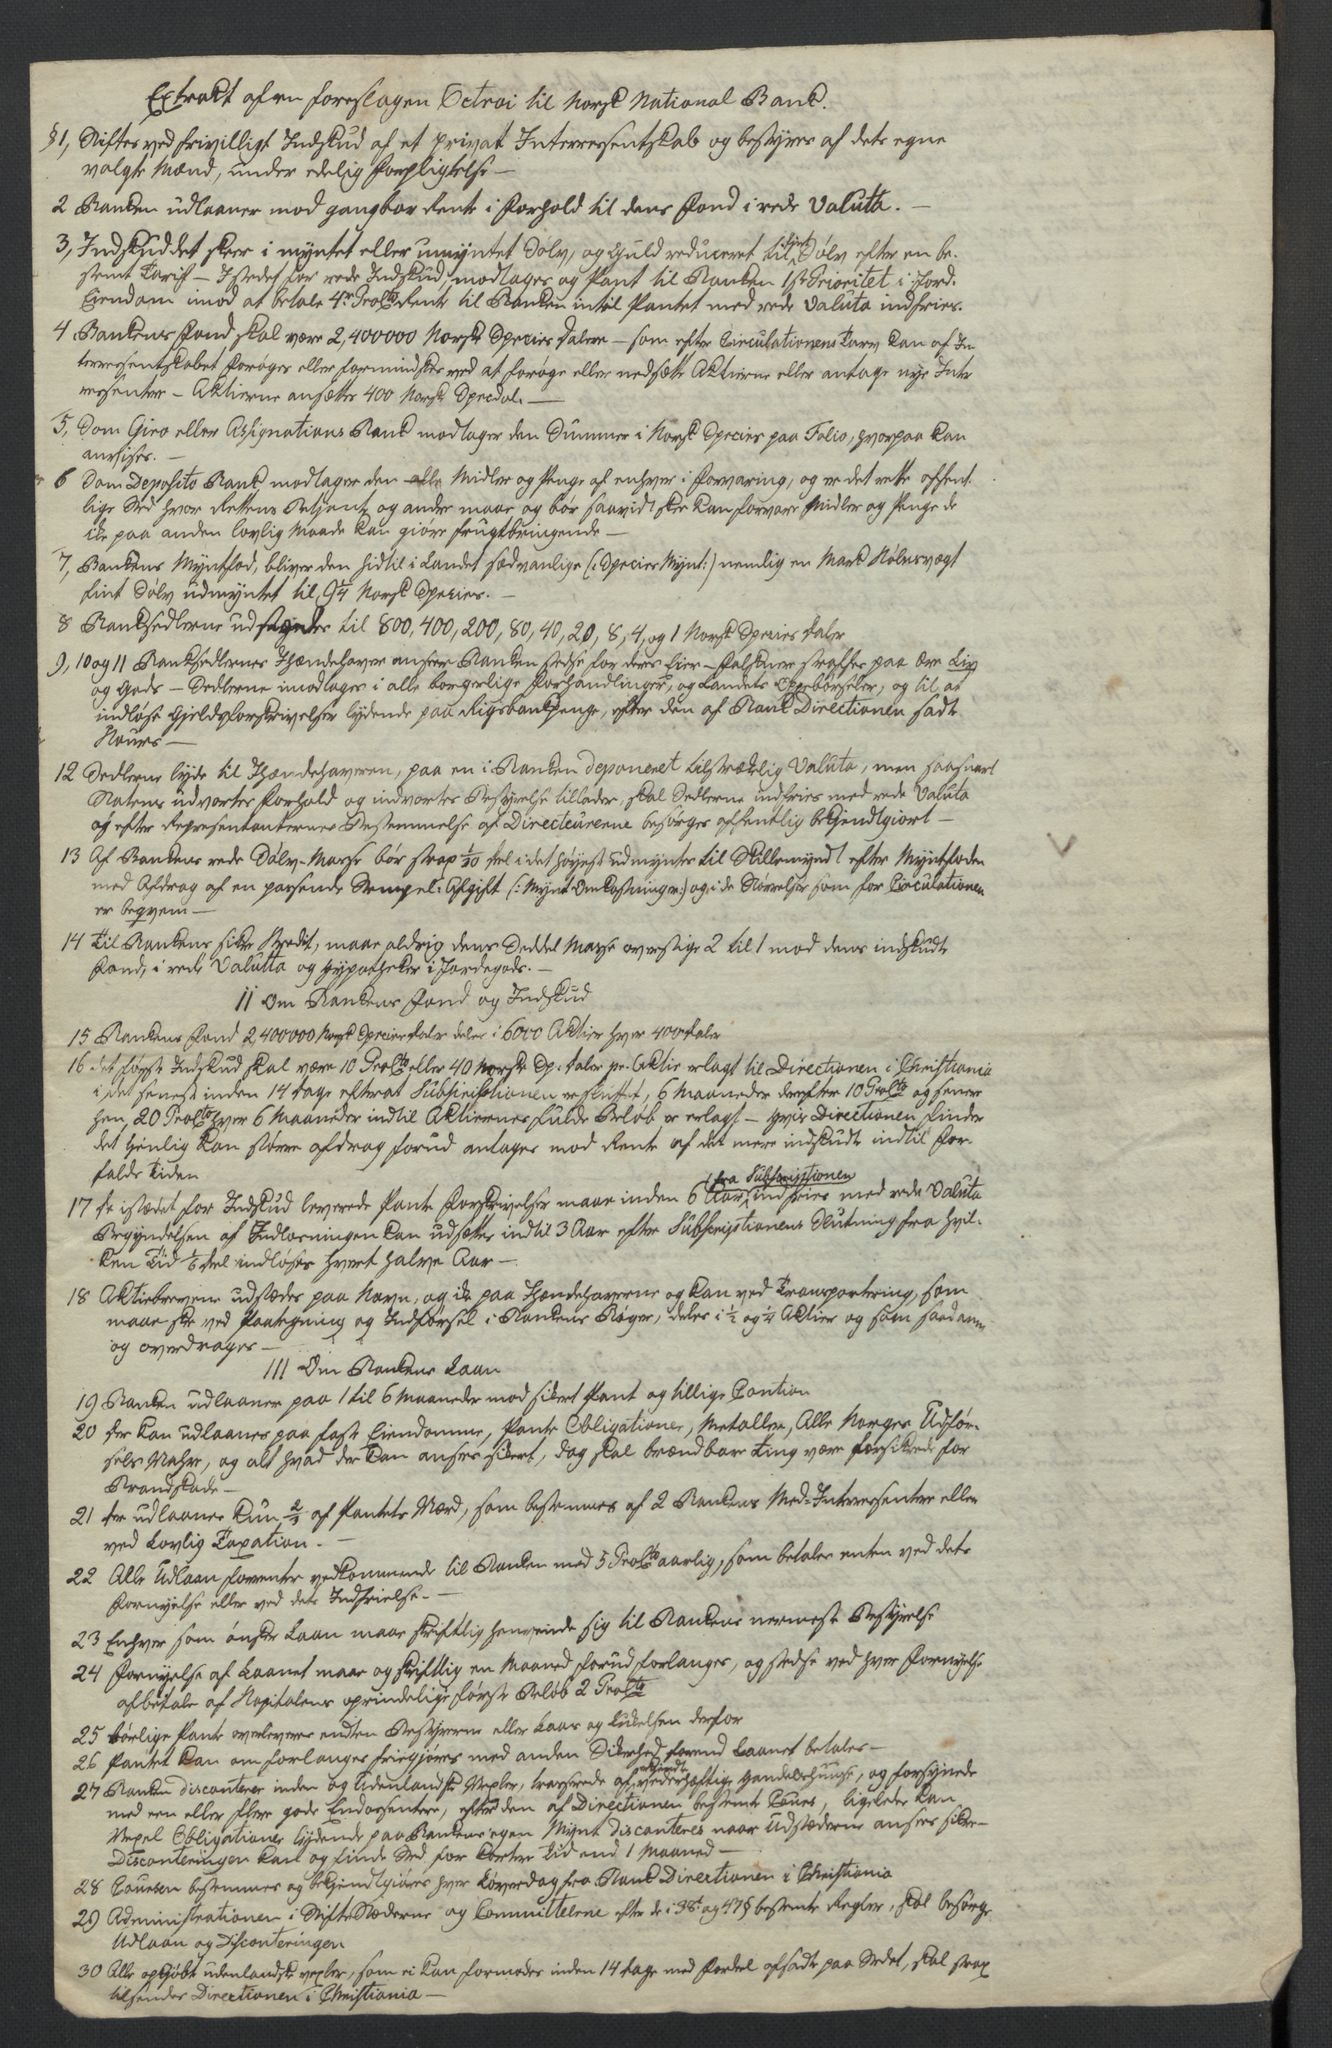 Extrakt af en foreslagen Octroi til Norsk National Bank.
§ 1, Stiftes ved frivilligt Indskud af et privat Interressentskab og bestyres af dets egne
valgte Mænd, under edelig Forpligtelse —
2 Banken udlaaner mod gangbar Rente i Forhold til dens Fond i rede Valuta. —
3, Indskuddet skeer i myntet eller umyntet Sølv, og Guld reduceret til fint Sølv efter en be-
stemt Tarif — Istedet for rede Indskud, modtages og Pant til Banken 1ste Prioritet i Jord-
Eiendom imod at betale 4re ProCto Rente til Banken intil Pantet med rede Valuta indfries.
4 Bankens Fond skal være 2,400000 Norsk Species Dalere — som efter Circulationens Tarv kan af In-
terressentskabet forøges eller formindskes ved at forøge eller nedsætte Aktierne eller antage nye Inte
ressenter — Aktierne ansættes 400 Norsk Specdal. —
5, Som Giro eller Assignations Bank modtager den Summer i Norsk Species paa Folio, hvorpaa kan
anvises. —
6 Som Deposito Bank modtager den alle Midler og Penge af enhver i Forvaring, og er det rette offent-
lige Sted hvor Rettens Betjente og andre maae og bør saavidt skee kan forvare Midler og Penge de
ik paa anden lovlig Maade kan giøre frugtbringende —
7, Bankens Myntfod, bliver den hidtil i Landet sædvanlige (: Species Mynt :) nemlig en Mark Kølnsvægt
fint Sølv udmyntet til 9¼ Norsk Species. —
8 Banksedlerne udstædes til 800, 400, 200, 80, 40, 20, 8, 4, og 1 Norsk Species Daler
9, 10 og 11 Banksedlernes Ihændehaver anseer Banken stedse for deres Eier — Falsknere straffes paa Ære Liv
og Gods — Sedlerne imodtages i alle borgerlige Forhandlinger, og Landets Oppebørseler, og til at
indløse Gieldsforskrivelser lydende paa Rigsbankpenge, efter den af Bank Directionen sadte
Kours —
12 Sedlerne lyde til Ihændehaveren, paa en i Banken deponeret tilstrækelig Valuta, men saasnart
Statens udvortes Forhold og indvortes Bestyrelse tillader, skal Sedlerne indfries med rede Valuta
og efter Representanternes Bestemmelse af Directeurerne besørges offentlig bekjendtgiort —
13 Af Bankens rede Sølv-Masse bør strax 1/20 del i det høyeste udmyntes til Skillemynt efter Myntfoden
med Afdrag af en passende Stempel-Afgift (: Mynt Omkostninger :) og i de Størrelser som for Circulationen
er beqvem —
14 Til Bankens sikre Kredit, maae aldrig dens Seddel Masse overstige 2 til 1 mod dens indskudte
Fond, i rede Valutta og Hypotheker i Jordegods. —
II Om Bankens Fond og Indskud
15 Bankens Fond 2,400000 Norsk Speciesdaler deles i 6000 Aktier hver 400 Daler
16 det første Indskud skal være 10 ProCto eller 40 Norske Sp. daler pr. Aktie erlagt til Directionen i Christiania
i det seneste inden 14 dage efterat Subscriptionen er sluttet, 6 Maaneder derefter 10 ProCto og senere
hen, 20 ProCto hver 6 Maaneder indtil Aktiernes fulde Beløb er erlagt — Hvis Directionen finder
det tjenlig kan større afdrag forud antages mod Rente af det mere indskudte indtil For-
falds Tiden
17 De istædet for Indskud leverede Pante Forskrivelser maae inden 6 Aar fra Subscriptionen indfries med rede Valuta
Begyndelsen af Indløsningen kan udsættes indtil 3 Aar efter Subscriptionens Slutning fra hvil-
ken Tid 1/6 del indløses hvert halve Aar —
18 Aktiebrevene udstædes paa Navn, og ik paa Ihændehaverne og kan ved Transportering, som
maae skee ved Paategning og Indførsel i Bankens Bøger, deles i ½ og ¼ Aktier og som saadanne
og overdrages —
III Om Bankens Laan
19 Banken udlaaner paa 1 til 6 Maaneder mod sikkert Pant og tillige Caution
20 der kan udlaanes paa faste Eiendomme, Pante Obligationer, Metaller, Alle Norges Udfør-
sels Vahre, og alt hvad der kan ansees sikkert, dog skal brændbare Ting være forsikrede for
Brandskade —
21 der udlaanes kun 2/3 af Pantets Værd, som bestemmes af 2 Bankens Med-Interressentere eller
ved Lovlig Taxation. —
22 Alle Udlaan forrentes vedkommende til Banken med 5 ProCto aarlig, som betales enten ved dets
Fornyelse eller ved dets Indfrielse. —
23 Enhver som ønsker Laan maae skriftlig henvende sig til Bankens nærmeste Bestyrelse
24 Fornyelse af Laanet maae og skriftlig en Maaned forud forlanges, og stedse ved hver Fornyelse
afbetales af Kapitalens oprindelige første Beløb 2 ProCto
25 Rørlige Pante overleveres endten Bestyrerne eller Laas og Lukelsen derfor
26 Pantet kan om forlanges friegjøres med anden Sikerhed forend Laanet betales —
27 Banken disconterer inden og Udenlandske Vexler, trasserede af vederhæftige Handelshuuse, og forsynede
med een eller flere gode Endossentere, efter den af Directionen bestemte Cours, ligeledes kan
Vexel Obligationer lydende paa Bankens egen Mynt disconteres naar Udstæderne ansees sikre —
Disconteringen kan og finde Sted for kortere Tid end 1 Maaned —
28 Coursen bestemmes og bekjendtgiøres hver Løverdag fra Bank Directionen i Christiania
29 Administrationen i StiftsStæderne og Committeerne efter de i 38te og 47 § bestemte Regler, skal besørge
Udlaan og Disconteringen
30 Alle opkjøbte udenlandske vexler, som ei kan formodes inden 14 dage med Fordeel afsadte paa Stedet, skal strax
tilsendes Directionen i Christiania —